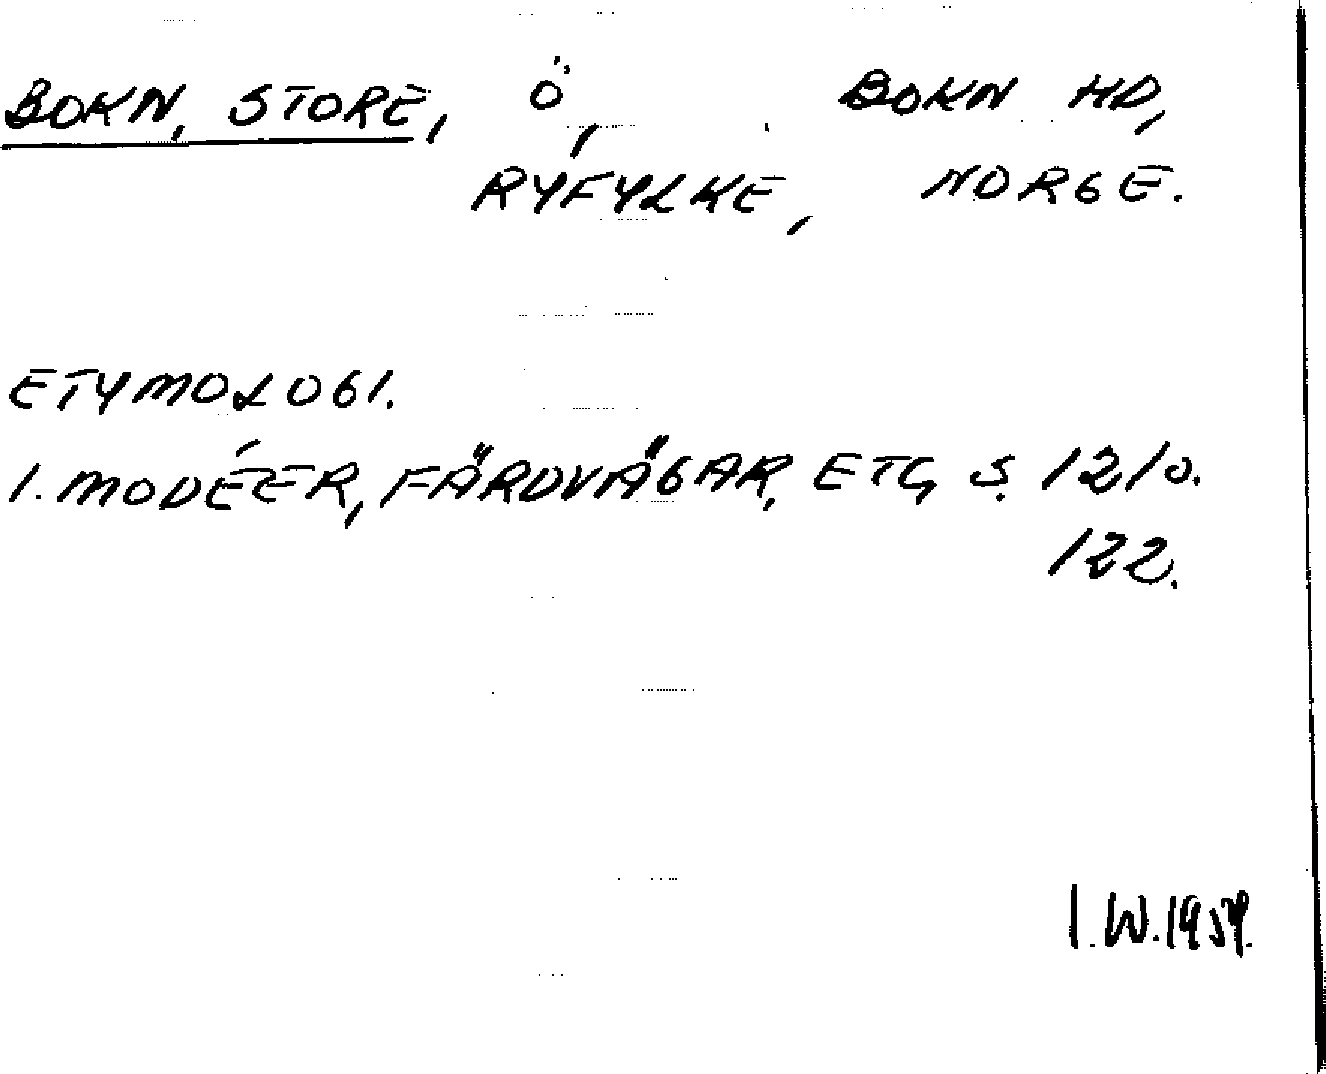 BOKN, STORE, Ö, BOKN HD,
RYFYLKE, NORGE.
ETYMOLOGI.
I. MODÉER, FÄRDVÄGAR, ETC, S. 121 O.
122.
I.W. 1959.